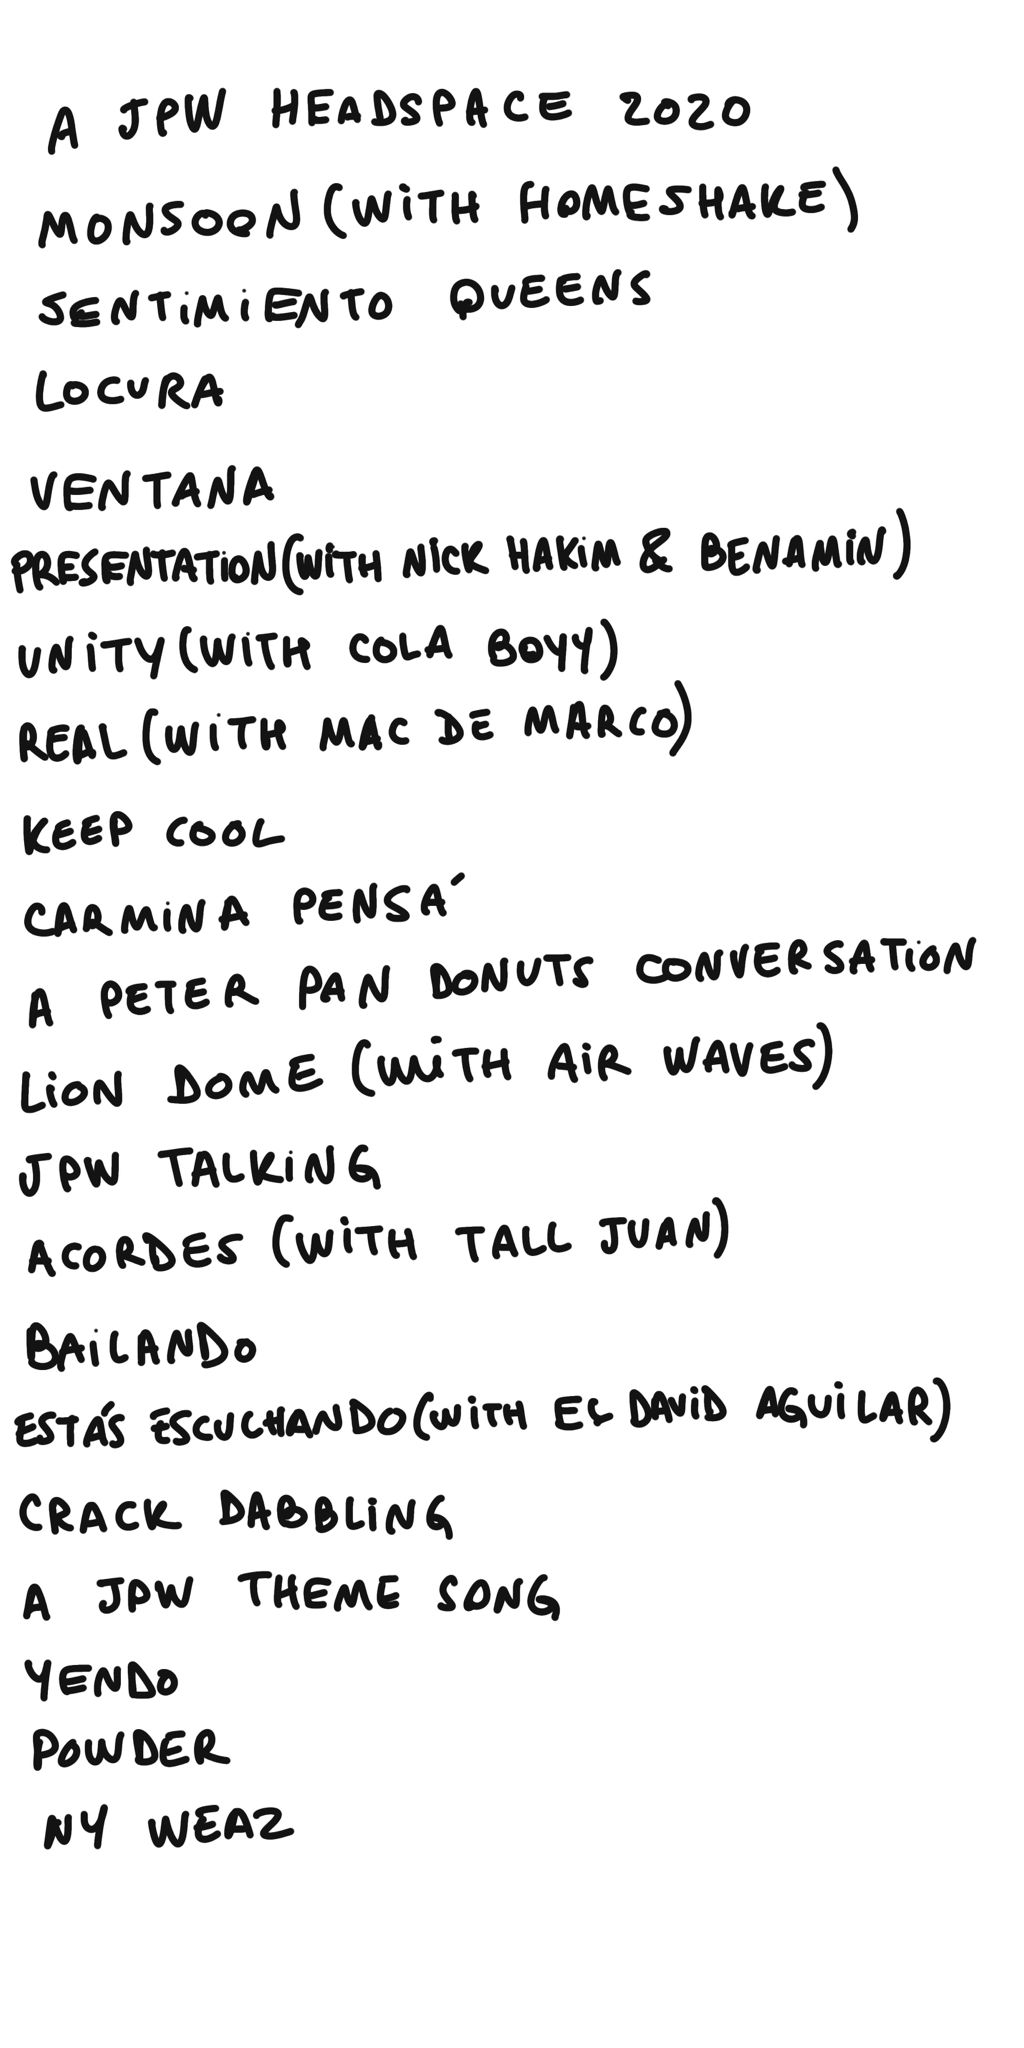 A JPW HEADSPACE 2020
MONSOON (WITH HOMESHAKE)
SENTIMIENTO QUEENS
LOCURA
VENTANA
PRESENTATION (WITH NICK HAKIM & BENAMIN)
UNITY (WITH COLA BOYY)
REAL (WITH MAC DE MARCO)
KEEP COOL
CARMINA PENSÁ
A PETER PAN DONUTS CONVERSATION
LION DOME (WITH AIR WAVES)
JPW TALKING
ACORDES (WITH TALL JUAN)
BAILANDO
ESTÁS ESCUCHANDO (WITH EL DAVID AGUILAR)
CRACK DABBLING
A JPW THEME SONG
YENDO
POWDER
NY WEAZ